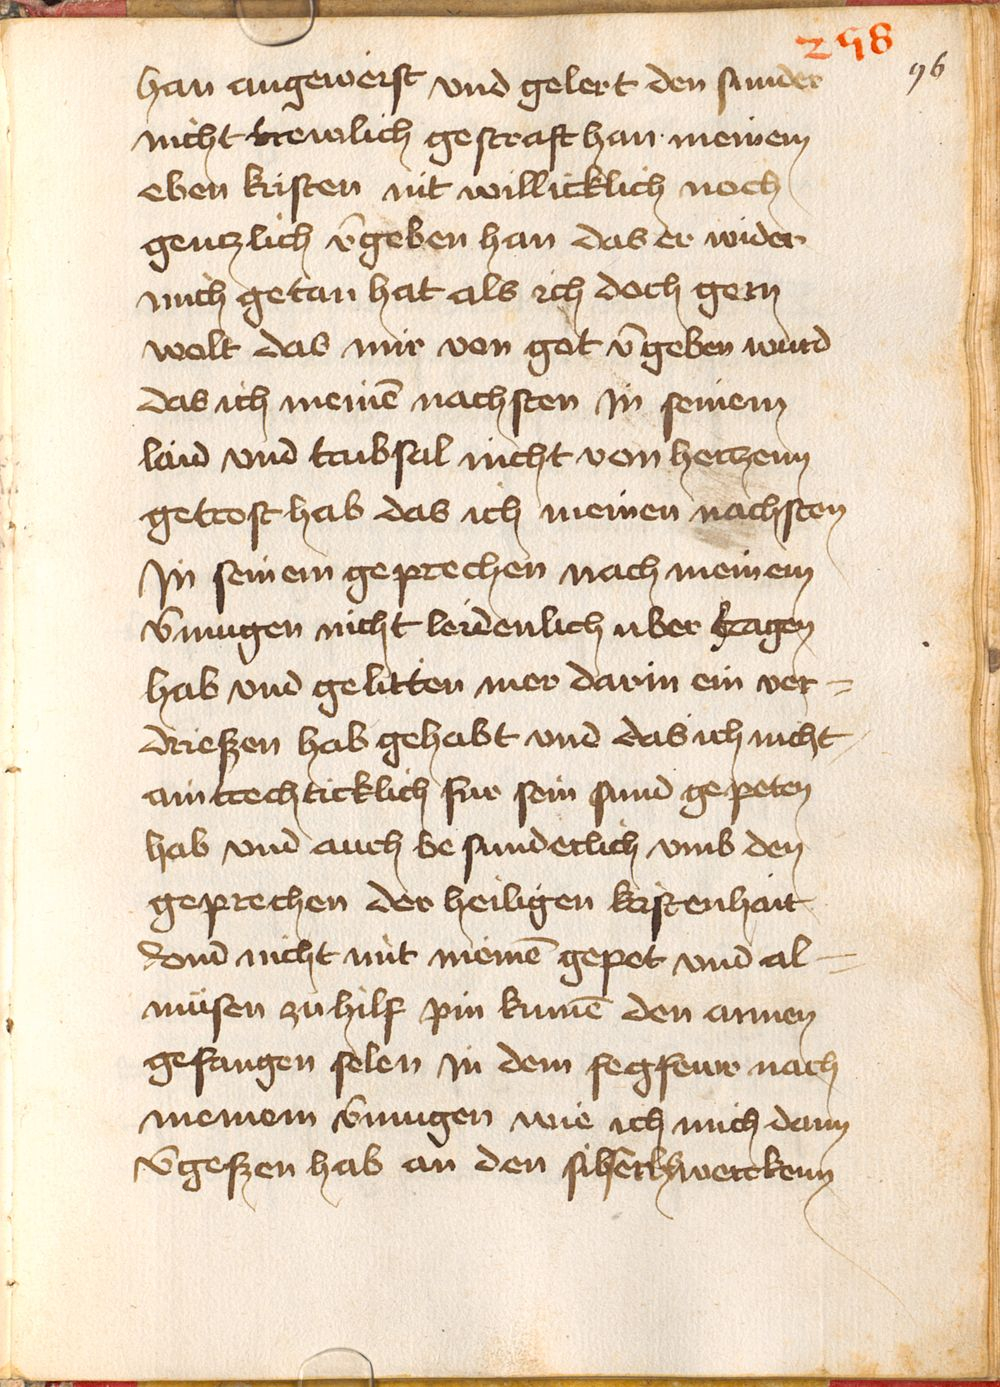 298
96
han angeweist vnd gelert den sunder
nicht trewlich gestraft han meinem
eben kristen nit willicklich noch
gentzlich v̄geben han das er wider
mich getan hat als ich doch gern
wolt das mir von got v̄geben wurd
das ich meinē nachsten In seinem
laid vnd trubsal nicht von hertzenn
getrost hab das ich meinen nachsten
In seinem geprechen nach meinem
v̄mugen nicht leidenlich vber tragen
hab vnd gelitten mer darin ein ver=
driessen hab gehabt vnd das ich nicht
aintrechticklich fur sein sund gepeten
hab vnd auch besunderlich vmb den
geprechen der heiligen kristenhait
vnd nicht mit meinē gepet vnd al=
mūsen zu hilf pin kumē den armen
gefangen selen In dem fegfewr nach
meinem v̄mugen wie ich mich dann
v̄gessen hab an den werckenn